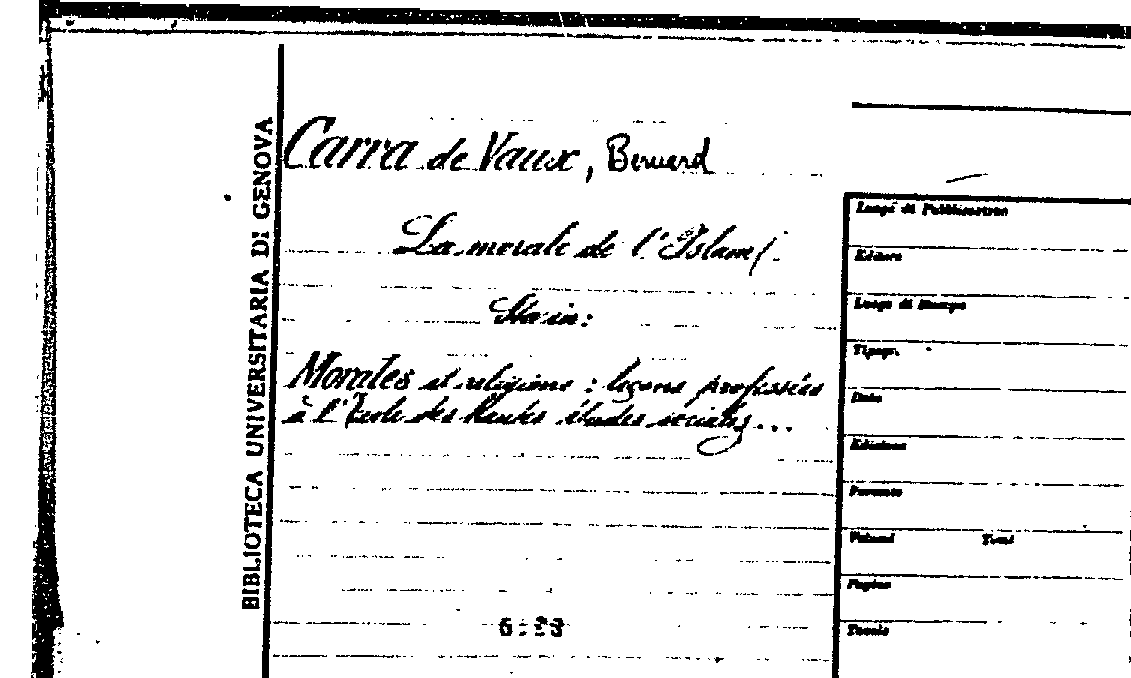 BIBLIOTECA UNIVERSITARIA DI GENOVA
Carra de Vaux, Bernard
La morale de l'Islam/.
Sta in:
Morales et religions : leçons professées
à l'École des Hautes études sociales...
Luogo di Pubblicazione
Editore
Luogo di Stampa
Tipogr.
Data
Edizione
Formato
Volumi Tomi
Pagine
Tavole